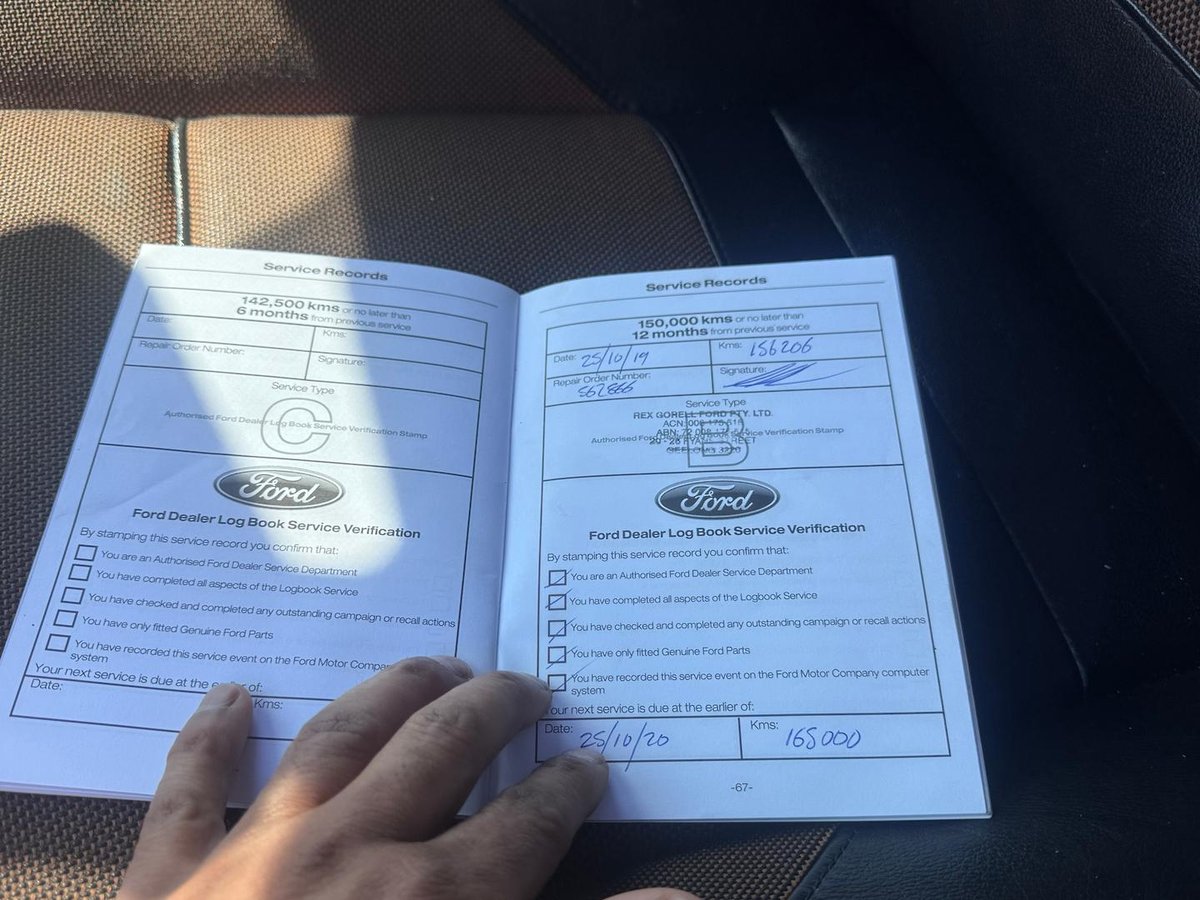 Service Records
142,500 kms or no later than
6 months from previous service
Date:
Kms:
Repair Order Number:
Signature:
Service Type
C
Authorised Ford Dealer Log Book Service Verification Stamp
Ford
Ford Dealer Log Book Service Verification
By stamping this service record you confirm that:
You are an Authorised Ford Dealer Service Department
You have completed all aspects of the Logbook Service
You have checked and completed any outstanding campaign or recall actions
You have only fitted Genuine Ford Parts
You have recorded this service event on the Ford Motor
system
Your next service is due at the of:
Date:
Kms:
Service Records
150,000 kms or no later than
12 months from previous service
Date: 25/10/19
Kms: 156206
Repair Order Number:
562866
Signature:
Service Type
REX GORELL FORD PTY. LTD.
B
Authorised Service Verification Stamp
GEELONG 3220
Ford
Ford Dealer Log Book Service Verification
By stamping this service record you confirm that:
You are an Authorised Ford Dealer Service Department
You have completed all aspects of the Logbook Service
You have checked and completed any outstanding campaign or recall actions
You have only fitted Genuine Ford Parts
You have recorded this service event on the Ford Motor Company computer
system
our next service is due at the earlier of:
Date: 25/10/20
Kms: 165000
-67-